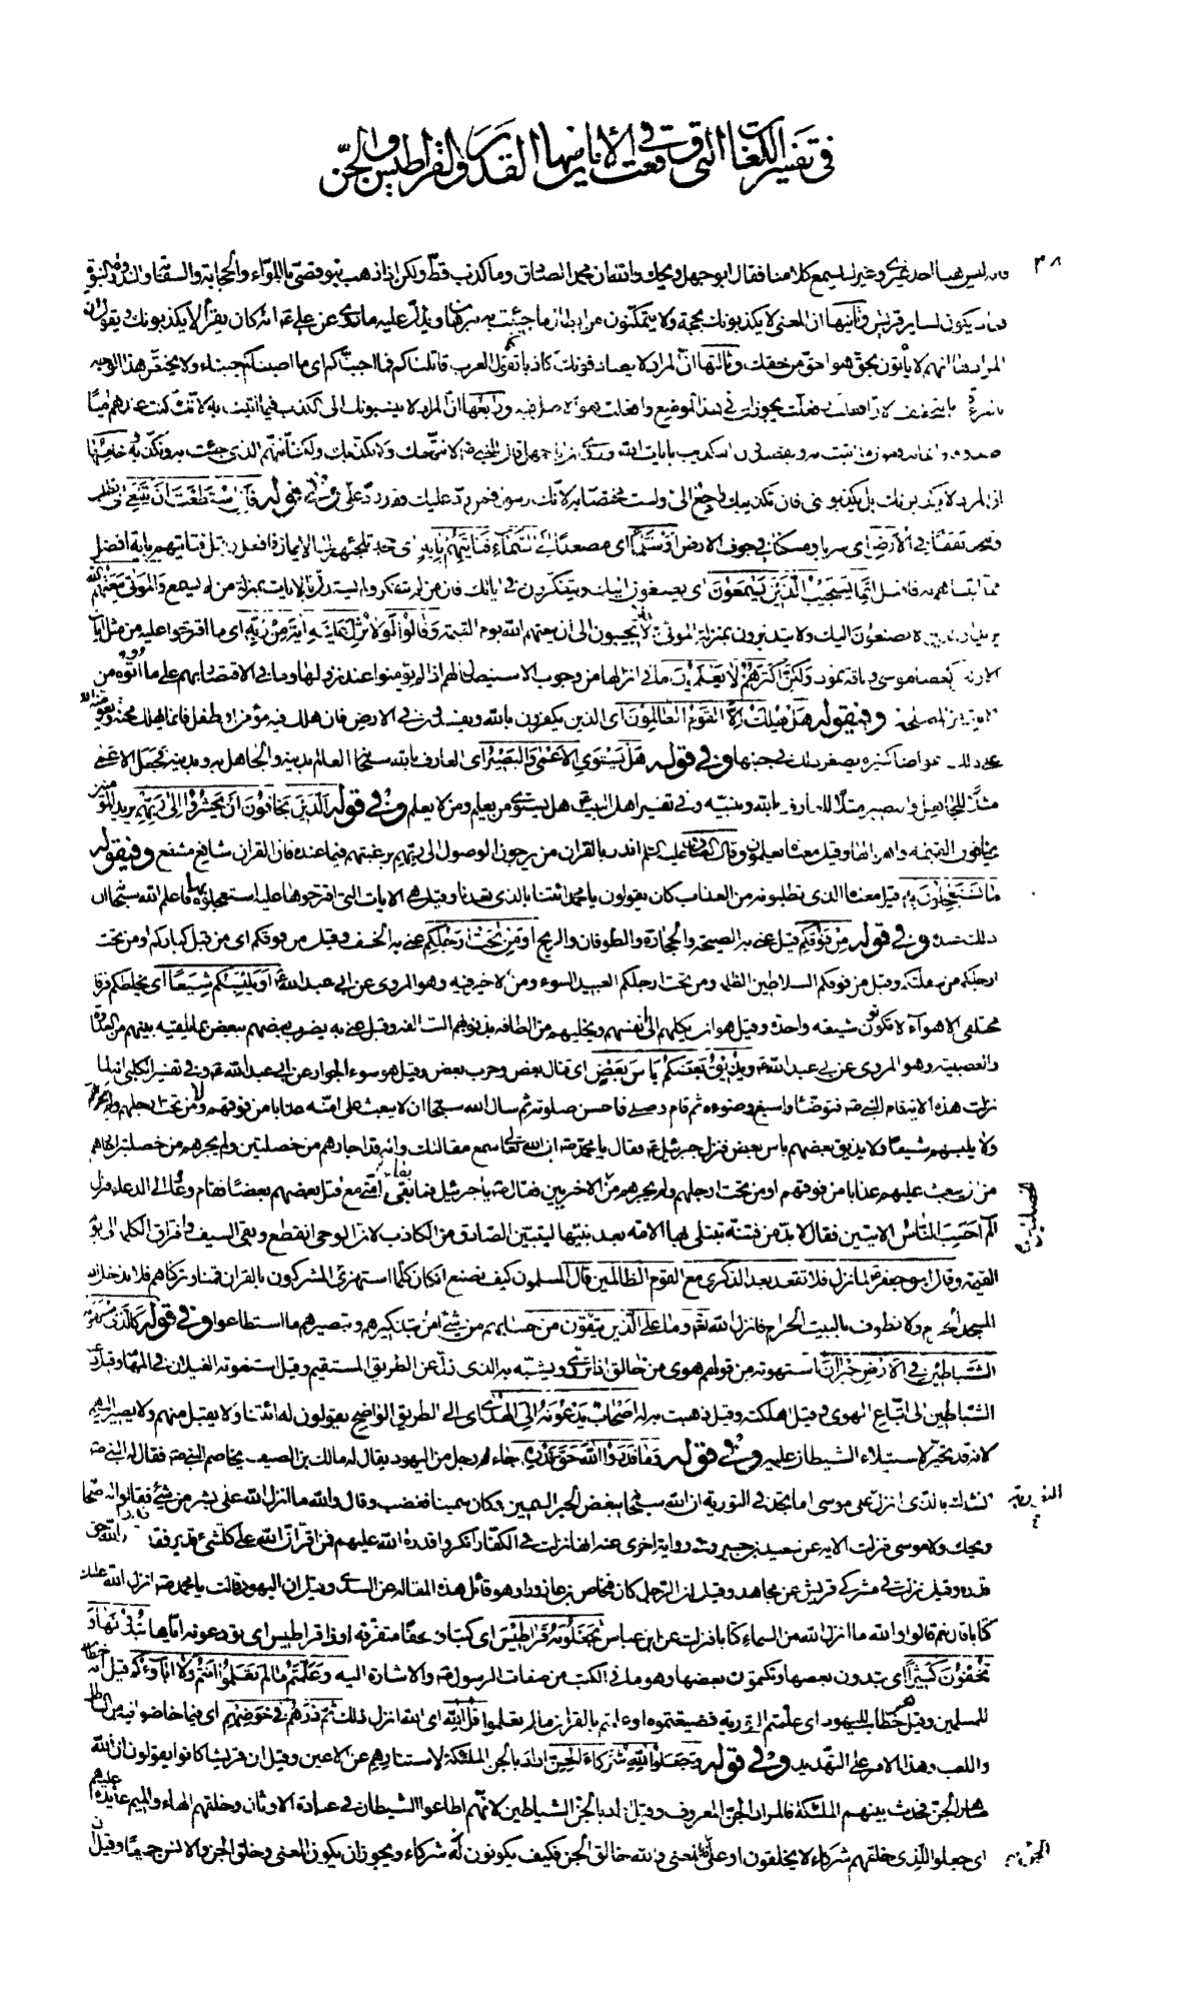 في تفسير اللغات التي وقعت في الآيات منها القدر والقراطيس والجن
٣٨
ليس هنا احد غيري وغيرك يسمع كلامنا فقال ابوجهل ويحك والله ان محمد الصادق وما كذب قط ولكن اذا ذهب بنو قصي باللواء والحجابة والسقاية والندوة والنبوة
فماذا يكون لساير قريش وثانيها ان المعنى لا يكذبونك بحجة ولا يتمكنون من ابطال ما جئت به ببرهان ويدل عليه ما روي عن علي ع انه كان يقرأ لا يكذبونك ويقول ان
المراد بها انهم لا يأتون بحق هو احق من حقك وثالثها ان المراد لا يصادفونك كاذبا تقول العرب قاتلناكم فما اجبناكم اي ما اصبناكم جبناء ولا يختص هذا الوجه
بالتخفيف لان افعلت وفعلت يجوزان في هذا الموضع وافعلت هو الاصل فيه ورابعها ان المراد لا ينسبونك الى الكذب فيما اتيت به لانك كنت عندهم امينا
صدوقا وانما يدفعون ما اتيت به ويقصدون التكذيب بآيات الله ان ابا جهل قال للنبي ص لا نتهمك ولا نكذبك ولكننا نتهم الذي جئت به ونكذبه وخامسها
ان المراد لا يكذبونك بل يكذبونني فان تكذيبك راجع الي ولست مختصا به لانك رسول فمن رد عليك فقد رد علي وفي قوله فان استطعت ان تبتغي اي تطلب
نفقا في الارض اي سربا ومسكنا في جوف الارض او سلما اي مصعدا الى السماء فتأتيهم بآية اي حجة تلجئهم الى الايمان فافعل وقيل فتأتيهم بآية افضل
مما اتيناهم به فافعل انما يستجيب الذين يسمعون اي يصغون اليك ويتفكرون في آياتك فان من لم يتفكر ولم يستدل بالآيات بمنزلة من لم يسمع والموتى يبعثهم الله
يريد ان الذين لا يصغون اليك ولا يتدبرون بمنزلة الموتى فلا يجيبون الى ان يبعثهم الله يوم القيمة وقالوا لولا نزل عليه آية من ربه اي ما اقترحوا عليه من مثل آيات
الاولين كعصا موسى وناقة ثمود ولكن اكثرهم لا يعلمون ما في انزالها من وجوب الاستيصال لهم اذا لم يؤمنوا عند نزولها وما في الاقتصار بهم على ما اوتوه من
الآيات من المصلحة وفي قوله هل يهلك الا القوم الظالمون اي الذين يكفرون بالله ويفسدون في الارض فان هلك فيه مؤمن او طفل فانما يهلك محنة ويعوضه الله
على ذلك اعواضا كثيرة يصغر ذلك في جنبها وفي قوله هل يستوي الاعمى والبصير اي العارف بالله سبحانه العالم بدينه والجاهل به وبدينه فجعل الاعمى
مثلا للجاهل والبصير مثلا للعارف بالله ونبيه وفي تفسير اهل البيت ع هل يستوي من يعلم ومن لا يعلم وفي قوله الذين يخافون ان يحشروا الى ربهم يريد المؤمنين
يخافون القيمة واهوالها وقيل معناه يعلمون وقال الصادق عليه السلم انذر بالقرآن من يرجون الوصول الى ربهم برغبتهم فيما عنده فان القرآن شافع مشفع وفي قوله
ما تستعجلون به قيل معناه الذي تطلبونه من العذاب كانوا يقولون يا محمد ائتنا بالذي تعدنا وقيل هي الآيات التي اقترحوها عليه استعجلوه بها فاعلم الله سبحانه ان
ذلك عنده وفي قوله من فوقكم قيل عنى به الصيحة والحجارة والطوفان والريح او من تحت ارجلكم عنى به الخسف وقيل من فوقكم اي من قبل كباركم او من تحت
ارجلكم من سفلتكم وقيل من فوقكم السلاطين الظلمة ومن تحت ارجلكم العبيد السوء ومن لا خير فيه وهو المروي عن ابي عبد الله ع او يلبسكم شيعا اي يخلطكم فرقا
مختلفي الاهواء لا تكونون شيعة واحدة وقيل هو ان يكلهم الى انفسهم ويخليهم من الطافه بذنوبهم السالفة وقيل عنى به يضرب بعضهم ببعض بما يلقيه بينهم من العداوة
والعصبية وهو المروي عن ابي عبد الله ع ويذيق بعضكم بأس بعض اي قتال بعض وحرب بعض وقيل هو سوء الجوار عن ابي عبد الله ع وفي تفسير الكلبي انه لما
نزلت هذه الآية قام النبي ص فتوضأ واسبغ وضوءه ثم قام وصلى فاحسن صلوته ثم سال الله سبحانه ان لا يبعث على امته عذابا من فوقهم ولا من تحت ارجلهم
ولا يلبسهم شيعا ولا يذيق بعضهم باس بعض فنزل جبرئيل ع فقال يا محمد ص ان الله تعالى سمع مقالتك وانه قد اجارهم من خصلتين ولم يجرهم من خصلتين اجارهم
من ان يبعث عليهم عذابا من فوقهم او من تحت ارجلهم ولم يجرهم من الاخريين فقال ص يا جبرئيل فما بقاء امتي مع قتل بعضهم بعضا فقام وعاد الى الدعاء فنزل
الم احسب الناس الآيتين فقال لا بد من فتنة تبتلى بها الامة بعد نبيها ليتبين الصادق من الكاذب لان الوحي انقطع وبقي السيف وافتراق الكلمة الى يوم
القيمة وقال ابو جعفر ع لما نزل فلا تقعد بعد الذكرى مع القوم الظالمين قال المسلمون كيف نصنع ان كان كلما استهزئ المشركون بالقرآن قمنا وتركناهم فلا ندخل اذا
المسجد الحرام ولا نطوف بالبيت الحرام فانزل الله تعم وما على الذين يتقون من حسابهم من شئ امر بتذكيرهم وتبصيرهم ما استطاعوا وفي قوله كالذي استهوته
الشياطين في الارض حيران استهوته من قولهم هوى من حالق اذا تردى ويشبه به الذي زل عن الطريق المستقيم وقيل استغوته الغيلان في المهامه وقيل دعته
الشياطين الى اتباع الهوى وقيل اهلكته وقيل ذهبت به له اصحاب يدعونه الى الهدى اي الى الطريق الواضح يقولون له ائتنا ولا يقبل منهم ولا يصير اليهم
لانه قد تحير لاستيلاء الشيطان عليه وفي قوله وما قدروا الله حق قدره جاء رجل من اليهود يقال له مالك بن الصيف يخاصم النبي ص فقال له النبي ص
انشدك بالذي انزل التورية على موسى اما تجد في التورية ان الله سبحانه يبغض الحبر السمين وكان سمينا فغضب وقال والله ما انزل الله على بشر من شئ فقال له اصحابه
ويحك ولا موسى فنزلت الآية عن سعيد بن جبير وفي رواية اخرى عنه انها نزلت في الكفار انكروا قدرة الله عليهم فمن اقر ان الله على كل شئ قدير فقد قدر الله حق
قدره وقيل نزلت في مشركي قريش عن مجاهد وقيل ان الرجل كان فنحاص بن عازورا وهو قائل هذه المقالة عن السدي وقيل ان اليهود قالت يا محمد ص انزل الله عليك
كتابا قال نعم قالوا والله ما انزل الله من السماء كتابا فنزلت عن ابن عباس تجعلونه قراطيس اي كتبا وصحفا متفرقة او ذا قراطيس اي تودعونه اياها تبدونها و
تخفون كثيرا اي تبدون بعضها وتكتمون بعضها وهو ما في الكتب من صفات الرسول ص والاشارة اليه وعلمتم ما لم تعلموا انتم ولا آباؤكم قيل انه خطاب
للمسلمين وقيل هو خطاب لليهود اي علمتم التورية فضيعتموه او علمتم بالقرآن ما لم تعلموا قل الله اي الله انزل ذلك ثم ذرهم في خوضهم اي فيما خاضوا فيه من الباطل
واللعب وهذا الامر على التهديد وفي قوله وجعلوا لله شركاء الجن اراد بالجن الملئكة لاستتارهم عن الاعين وقيل ان قريشا كانوا يقولون ان الله
صاهر الجن فحدث بينهم الملئكة فالمراد الجن المعروف وقيل اراد بالجن الشياطين لانهم اطاعوا الشيطان في عبادة الاوثان وخلقهم الهاء والميم عايدة عليهم
اي جعلوا للذي خلقهم شركاء لا يخلقون او على ان المعنى والله خالق الجن فكيف يكونون له شركاء ويجوز ان يكون المعنى وخلق الجن والانس جميعا وقيل ان